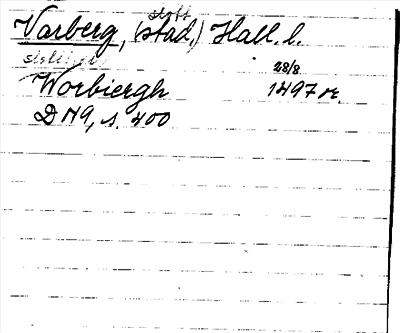 slott
Varberg, (stad.) Hall. l.
28/8
Worbiergh 1497 or.
DN 9, s. 400